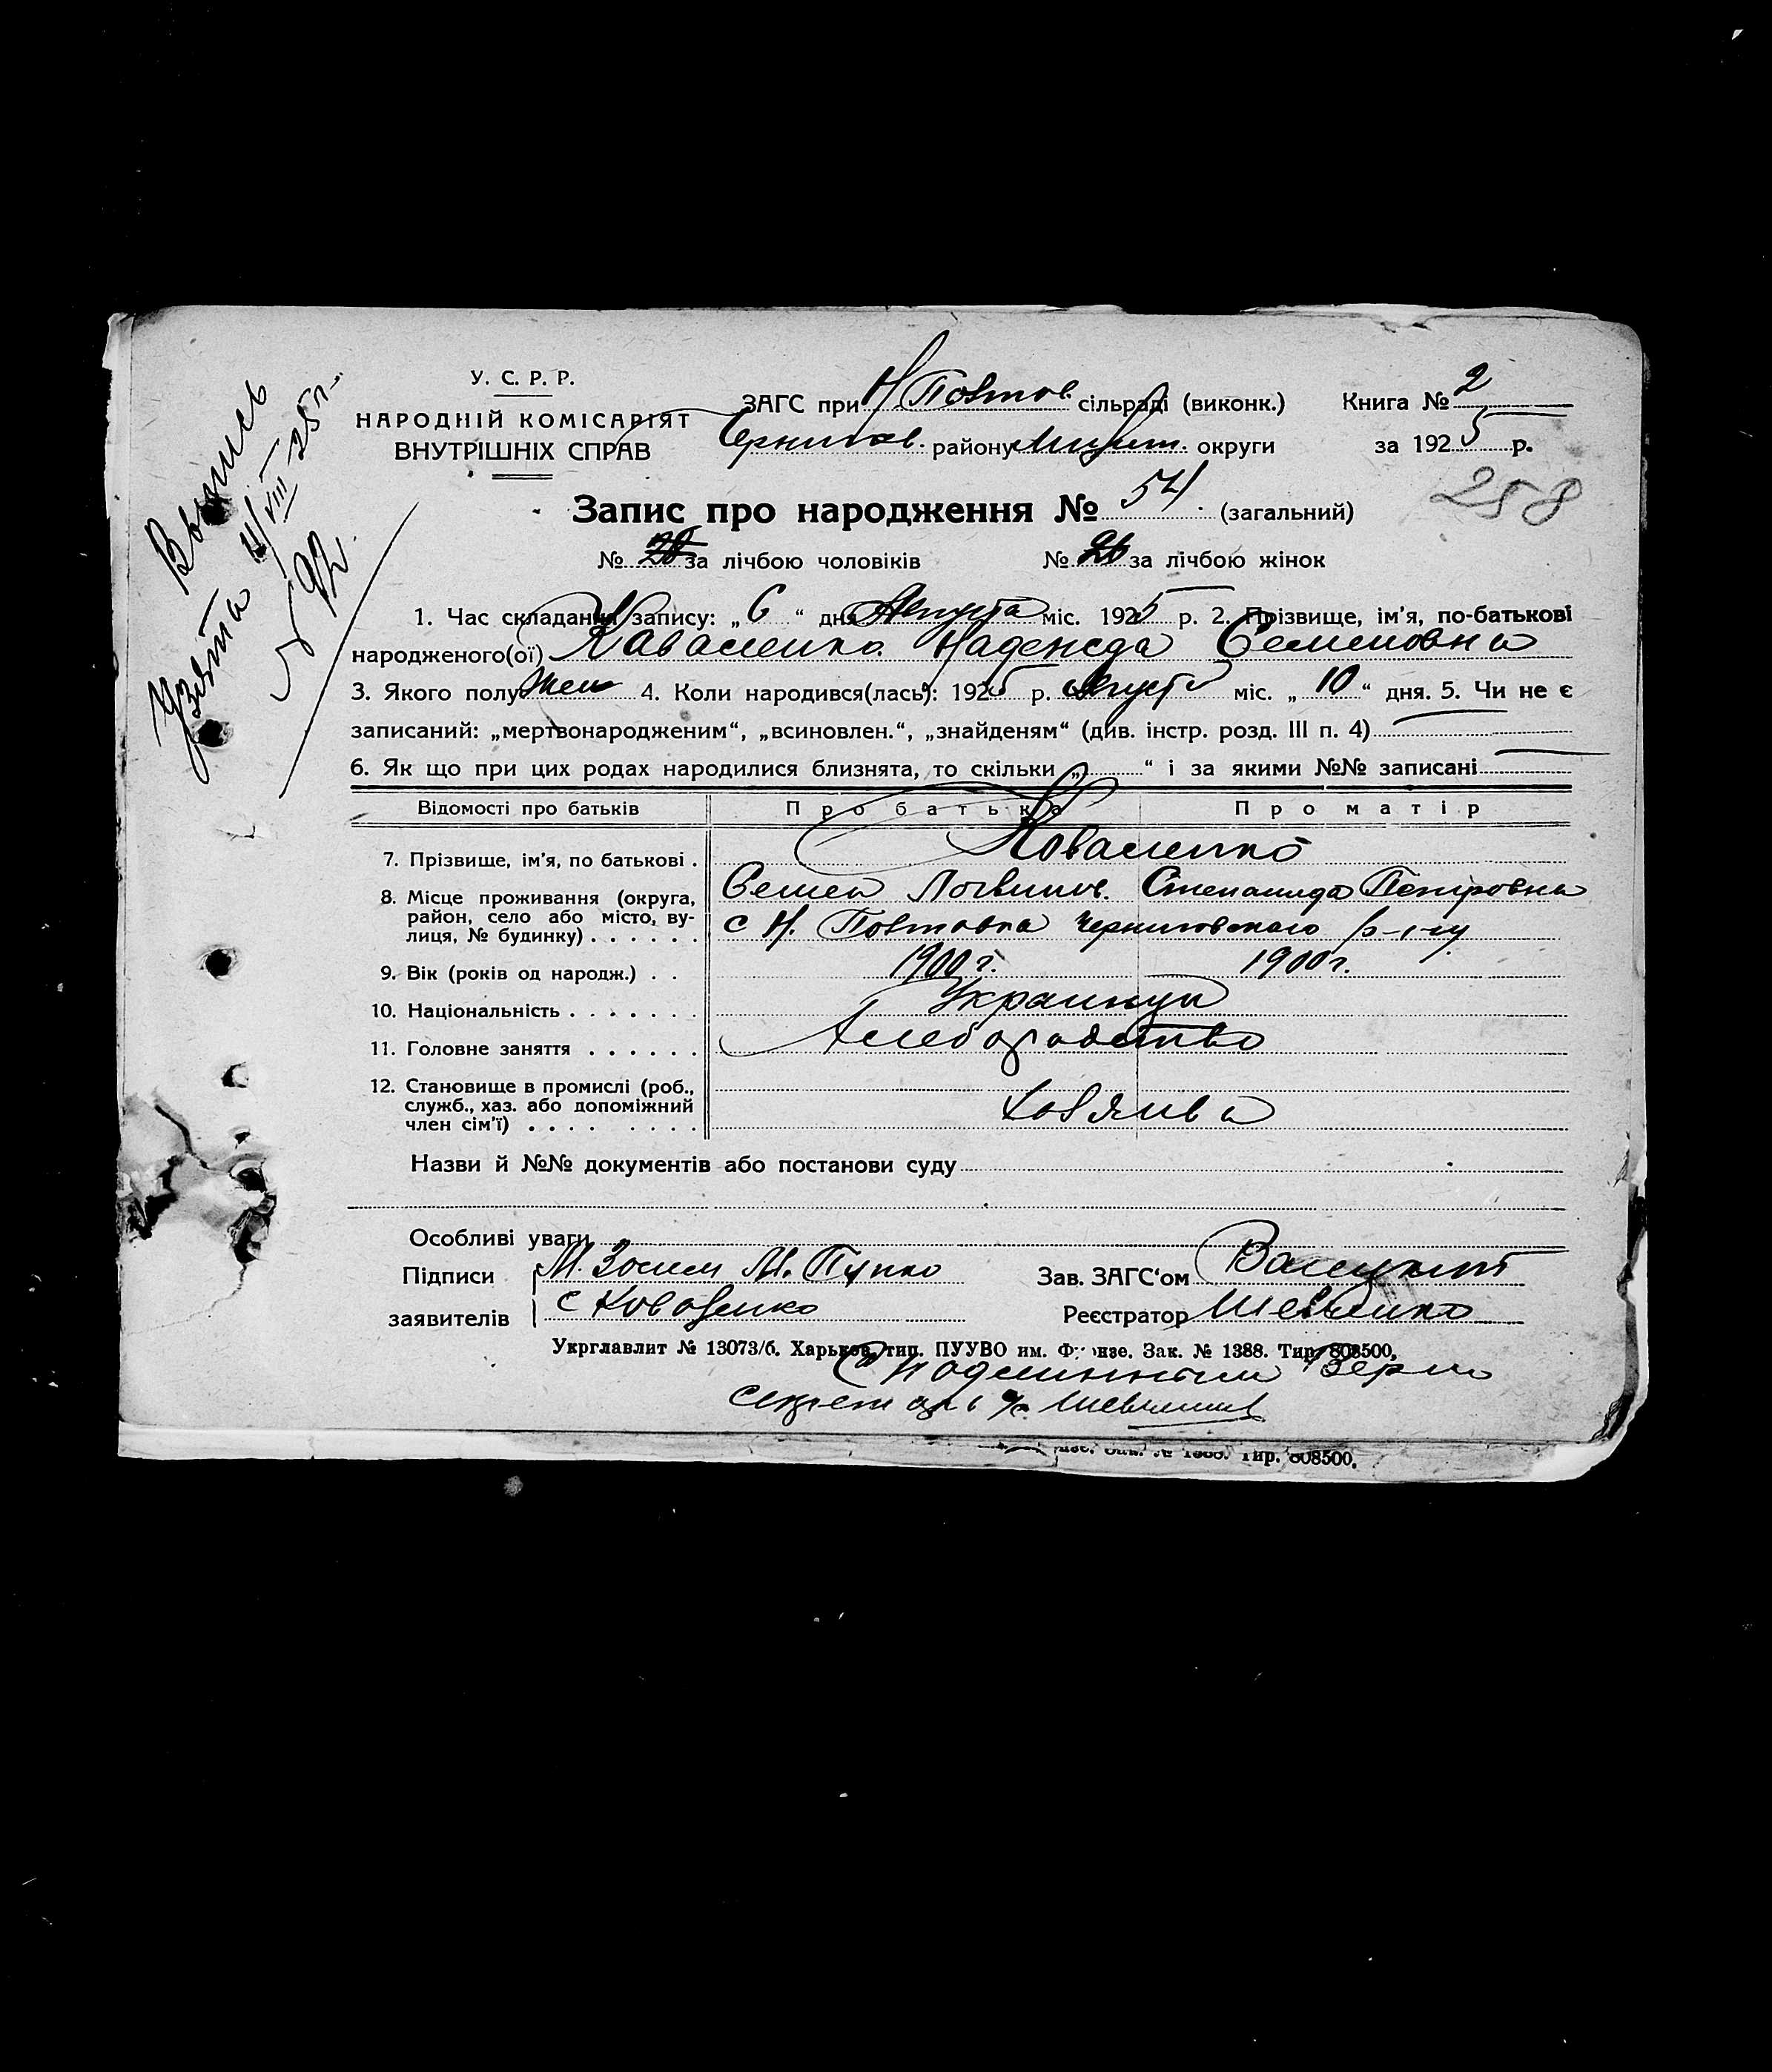 Выпись
Узята 11/VIII 25 г.
№ 92.
У. С. Р. Р.
НАРОДНІЙ КОМІСАРІЯТ
ВНУТРІШНІХ СПРАВ
ЗАГС при Н Повтов. сільраді (виконк.) Книга № 2
Чернигов. району округи за 1925 р.
258
Запис про народження № 54. (загальний)
№ за лічбою чоловіків № 26 за лічбою жінок
1. Час складання запису: „ 6 “ дня Августа міс. 1925 р. 2. Прізвище, ім'я, по-батькові
народженого(ої) Каваленко Надежда Семеновна
3. Якого полу жен 4. Коли народився(лась): 1925 р. Август міс. „ 10 “ дня. 5. Чи не є
записаний: „мертвонародженим“, „всиновлен.“, „знайденям“ (див. інстр. розд. III п. 4)
6. Як що при цих родах народилися близнята, то скільки „ “ і за якими №№ записані
Відомості про батьків Про батька Про матір
7. Прізвище, ім'я, по батькові . Коваленко
Семен Логвинов. Степанида Петровна
8. Місце проживання (округа,
район, село або місто, ву-
лиця, № будинку) . . . . . . с Н. Повтовка Черниговского р-ну
9. Вік (років од народж.) . . 1900 г. 1900 г.
10. Національність . . . . . . . Украинцы
11. Головне заняття . . . . . . Хлеборобство
12. Становище в промислі (роб.,
служб., хаз. або допоміжний
член сім'ї) . . . . . . . . Хозяива
Назви й №№ документів або постанови суду
Особливі уваги
Підписи М. Зосим М. Пупко Зав. ЗАГС'ом
заявителів С Коваленко Реєстратор Шевченко
Укрглавлит № 13073/б. Харьков, тип. ПУУВО им. Фрунзе. Зак. № 1388. Тир. 808500.
С подлинным верно
секретарь с/с
Зак. № 1388. Тир. 808500.